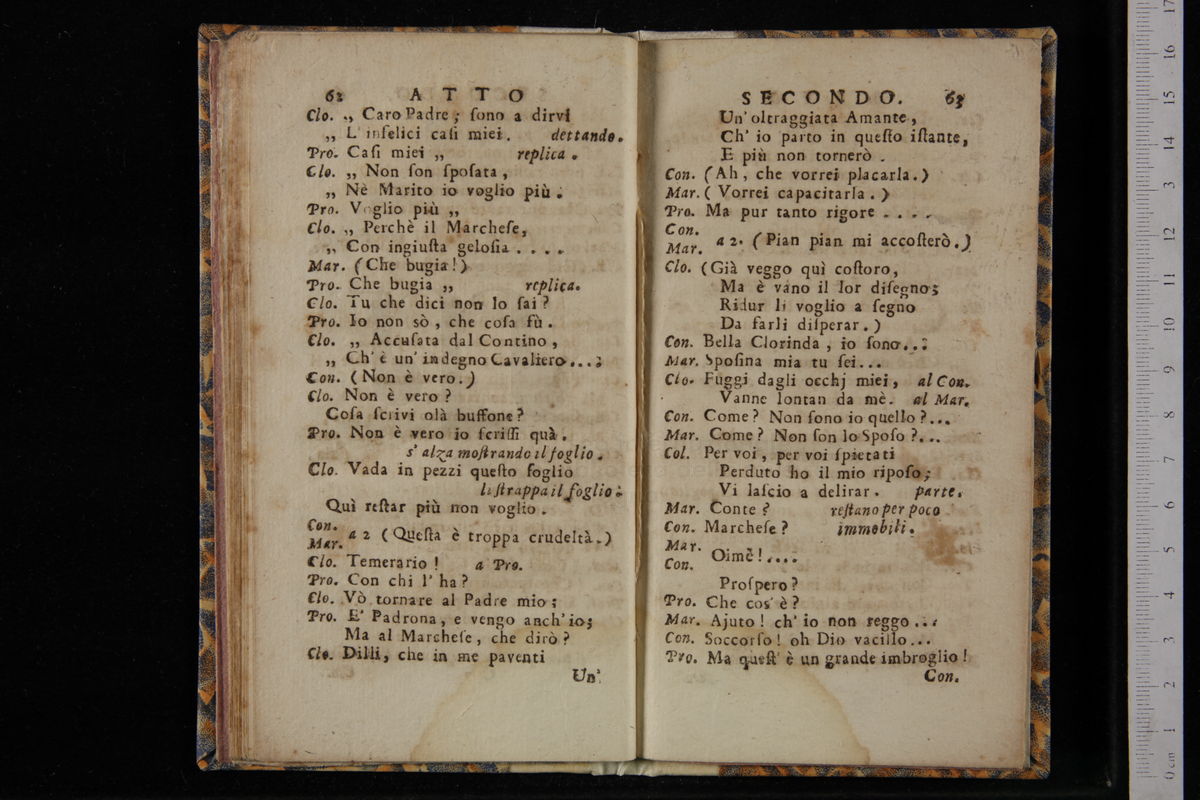 62 ATTO
Clo. „ Caro Padre; ſono a dirvi
„ L' infelici caſi miei. dettando.
Pro. Caſi miei „ replica.
Clo. „ Non ſon ſpoſata,
„ Nè Marito io voglio più.
Pro. Voglio più „
Clo. „ Perchè il Marcheſe,
„ Con ingiuſta geloſia....
Mar. (Che bugia!)
Pro. Che bugia „ replica.
Clo. Tu che dici non lo ſai?
Pro. Io non sò, che coſa fù.
Clo. „ Accuſata dal Contino,
„ Ch' è un' indegno Cavaliero...;
Con. (Non è vero.)
Clo. Non è vero?
Coſa ſcrivi olà buffone?
Pro. Non è vero io ſcriſſi quà.
s' alza moſtrando il foglio.
Clo. Vada in pezzi queſto foglio
li ſtrappa il foglio.
Quì reſtar più non voglio.
Con.
Mar. a 2 (Queſta è troppa crudeltà.)
Clo. Temerario! a Pro.
Pro. Con chi l' ha?
Clo. Vò tornare al Padre mio;
Pro. E' Padrona, e vengo anch' io;
Ma al Marcheſe, che dirò?
Clo. Dilli, che in me paventi
Un'
SECONDO. 63
Un' oltraggiata Amante,
Ch' io parto in queſto iſtante,
E più non tornerò.
Con. (Ah, che vorrei placarla.)
Mar. (Vorrei capacitarla.)
Pro. Ma pur tanto rigore....
Con.
Mar. a 2. (Pian pian mi accoſterò.)
Clo. (Già veggo quì coſtoro,
Ma è vano il lor diſegno;
Ridur li voglio a ſegno
Da farli diſperar.)
Con. Bella Clorinda, io ſono...
Mar. Spoſina mia tu ſei...
Clo. Fuggi dagli occhj miei, al Con.
Vanne lontan da mè. al Mar.
Con. Come? Non ſono io quello?...
Mar. Come? Non ſon lo Spoſo?...
Col. Per voi, per voi ſpietati
Perduto ho il mio ripoſo;
Vi laſcio a delirar. parte.
Mar. Conte? reſtano per poco
Con. Marcheſe? immobili.
Mar.
Con. Oimè!....
Proſpero?
Pro. Che cos' è?
Mar. Ajuto! ch' io non reggo...
Con. Soccorſo! oh Dio vacillo...
Pro. Ma queſt' è un grande imbroglio!
Con.
0 cm 1 2 3 4 5 6 7 8 9 10 11 12 13 14 15 16 17